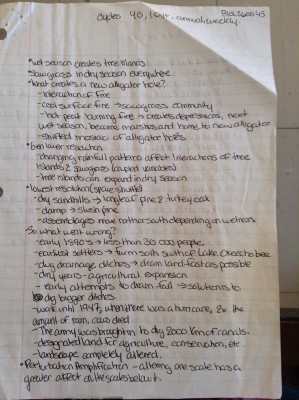 cycles 40, 1 eyr, annual, weekly. BIOL 2600 45
• wet season creates tree islands
• sawgrass in dry season everywhere
• What creates a new alligator hole?
- interaction of fire
- cool surface fire → sawgrass community
- hot peat burning fire → creates depressions, next
wet season, become marshes and home to new alligator
- shifted mosaic of alligator holes
• ben lower resolution
- changing rainfall patterns affect interactions of tree
islands & sawgrass (coupled variables)
- tree islands can expand in dry season
• lowest resolution
- dry sandhills → longleaf pine & turkey oak
- damp → slash pine
- assemblages move north or south depending on wetness
• So what went wrong?
- early 1900's → less than 30 000 people
- earliest settlers → farm south of Lake Okeechobee
- dug drainage ditches → drain land fast as possible
- dry years - agricultural expansion
- early attempts to drain fail → solution is to
dig bigger ditches
- work until 1947, when there was a hurricane, 3x the
amount of rain, cows died
- The army was brought in to dig 2000 km of canals.
- designated land for agriculture, conservation, etc.
- landscape completely altered.
• Perturbation Amplification - altering one scale has a
greater affect on the scales below it.